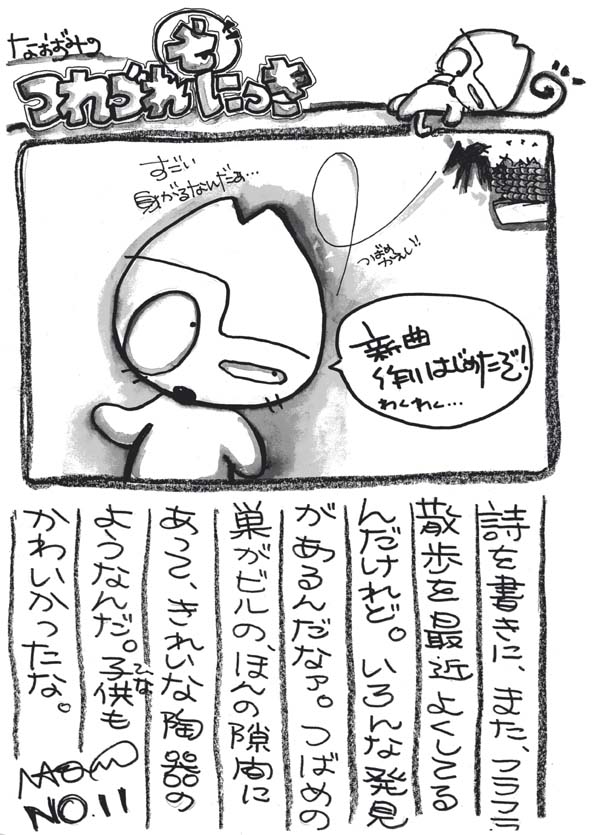 なおずみの
つれづれ
ぜ
にっき
すごい
身がるなんだぁ…
つばめ
かえし!!
新曲
作りはじめたぞ!
わくわく…
詩を書きに、また、フラフラ
散歩を最近よくしてる
んだけれど。いろんな発見
があるんだなァ。つばめの
巣がビルの、ほんの隙間に
あって、きれいな陶器の
ようなんだ。子供も
ひな
かわいかったな。
NAOZUMI
NO.11